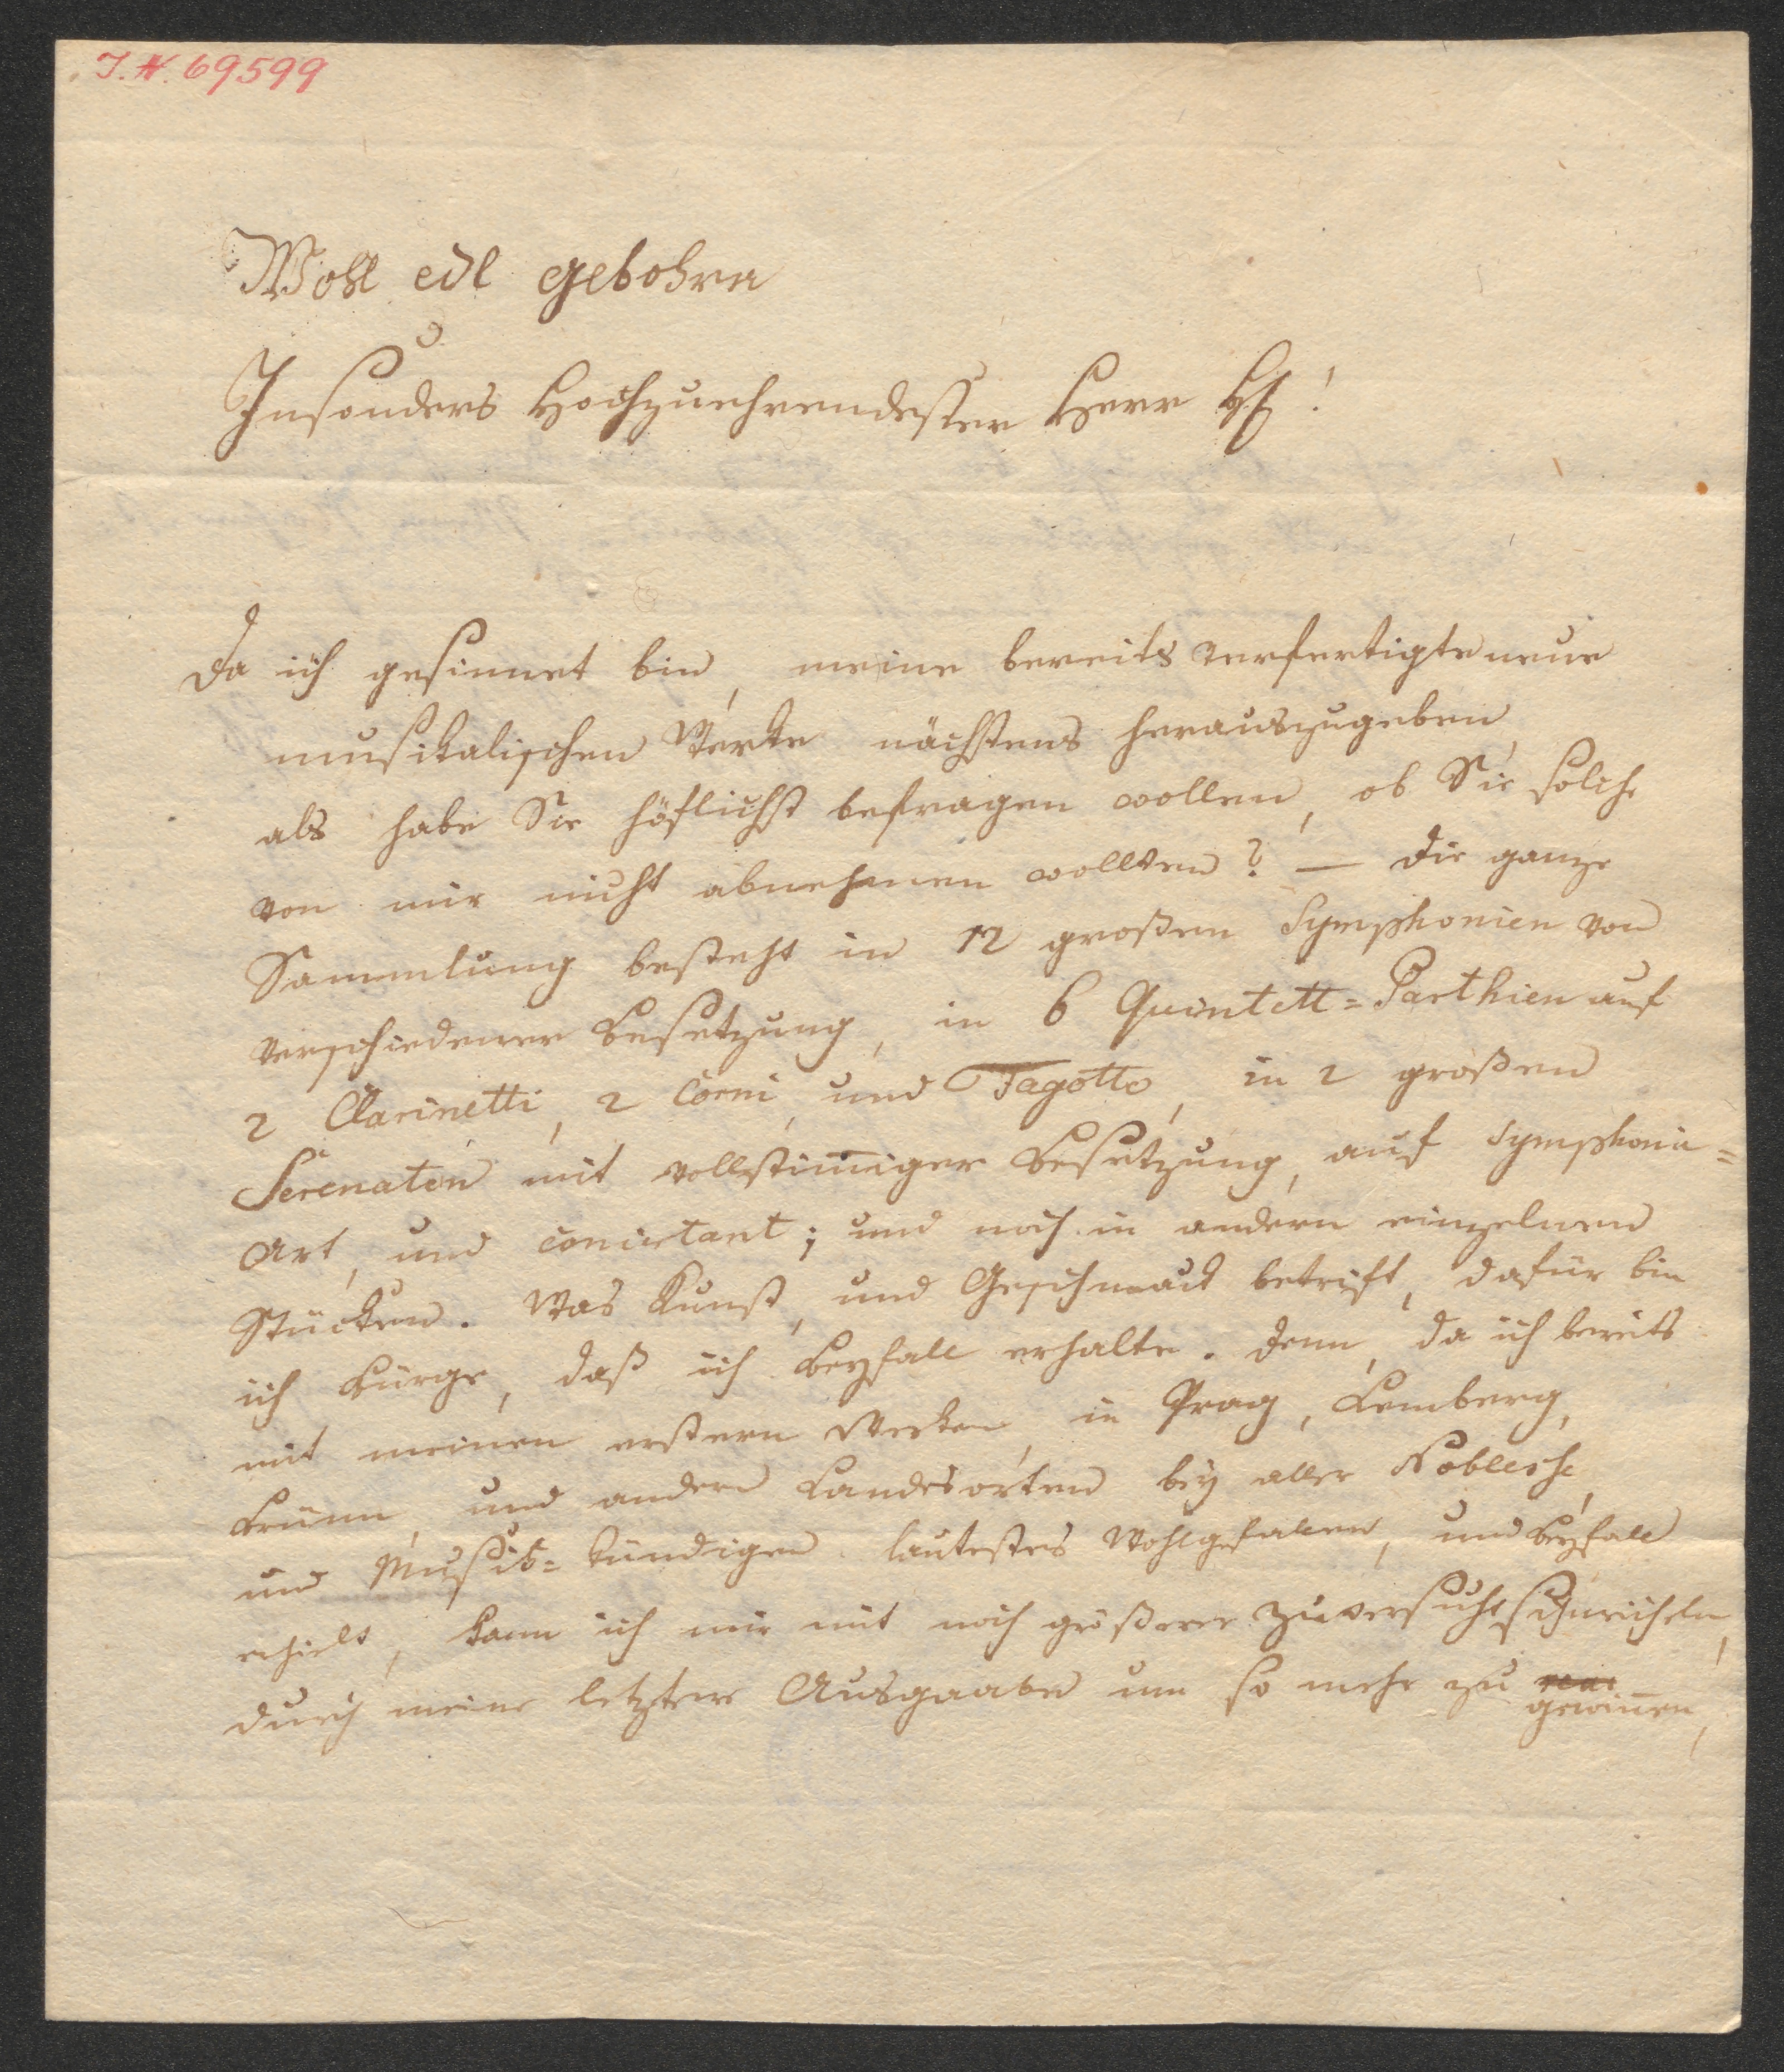 I. N. 69599
Wohl edl gebohrn
Insonders Hochzuehrendester Herr
Da ich gesinnet bin, meine bereits verfertigte neue
musikalischen Werke nächstens herauszugeben,
als habe Sie höflichst befragen wollen, ob Sie solche
von mir nicht abnehmen wollten? — Die ganze
Sammlung besteht in 12 großen Symphonien von
verschiedener Besetzung, in 6 Quintett=Parthien auf
2 Clarinetti, 2 Corni, und Fagotto, in 2 großen
Serenaten mit vollstim̄iger Besetzung, auf Symphonie=
Art, und concertant; und noch in andern einzelnen
Stücken. Was Kunst, und Geschmack betrift, dafür bin
ich Bürge, daß ich Beyfall erhalte. Denn, da ich bereits
mit meinen erstern Werken in Prag, Lemberg,
Brünn, und andern Landesorten bey aller Noblesse,
und Musik=kündigen lautestes Wohlgefallen, und Beyfall
erhielt, kann ich mir mit noch größerer Zuversicht schmeicheln,
durch meine letztere Ausgaabe um so mehr zu
gewin̄en,